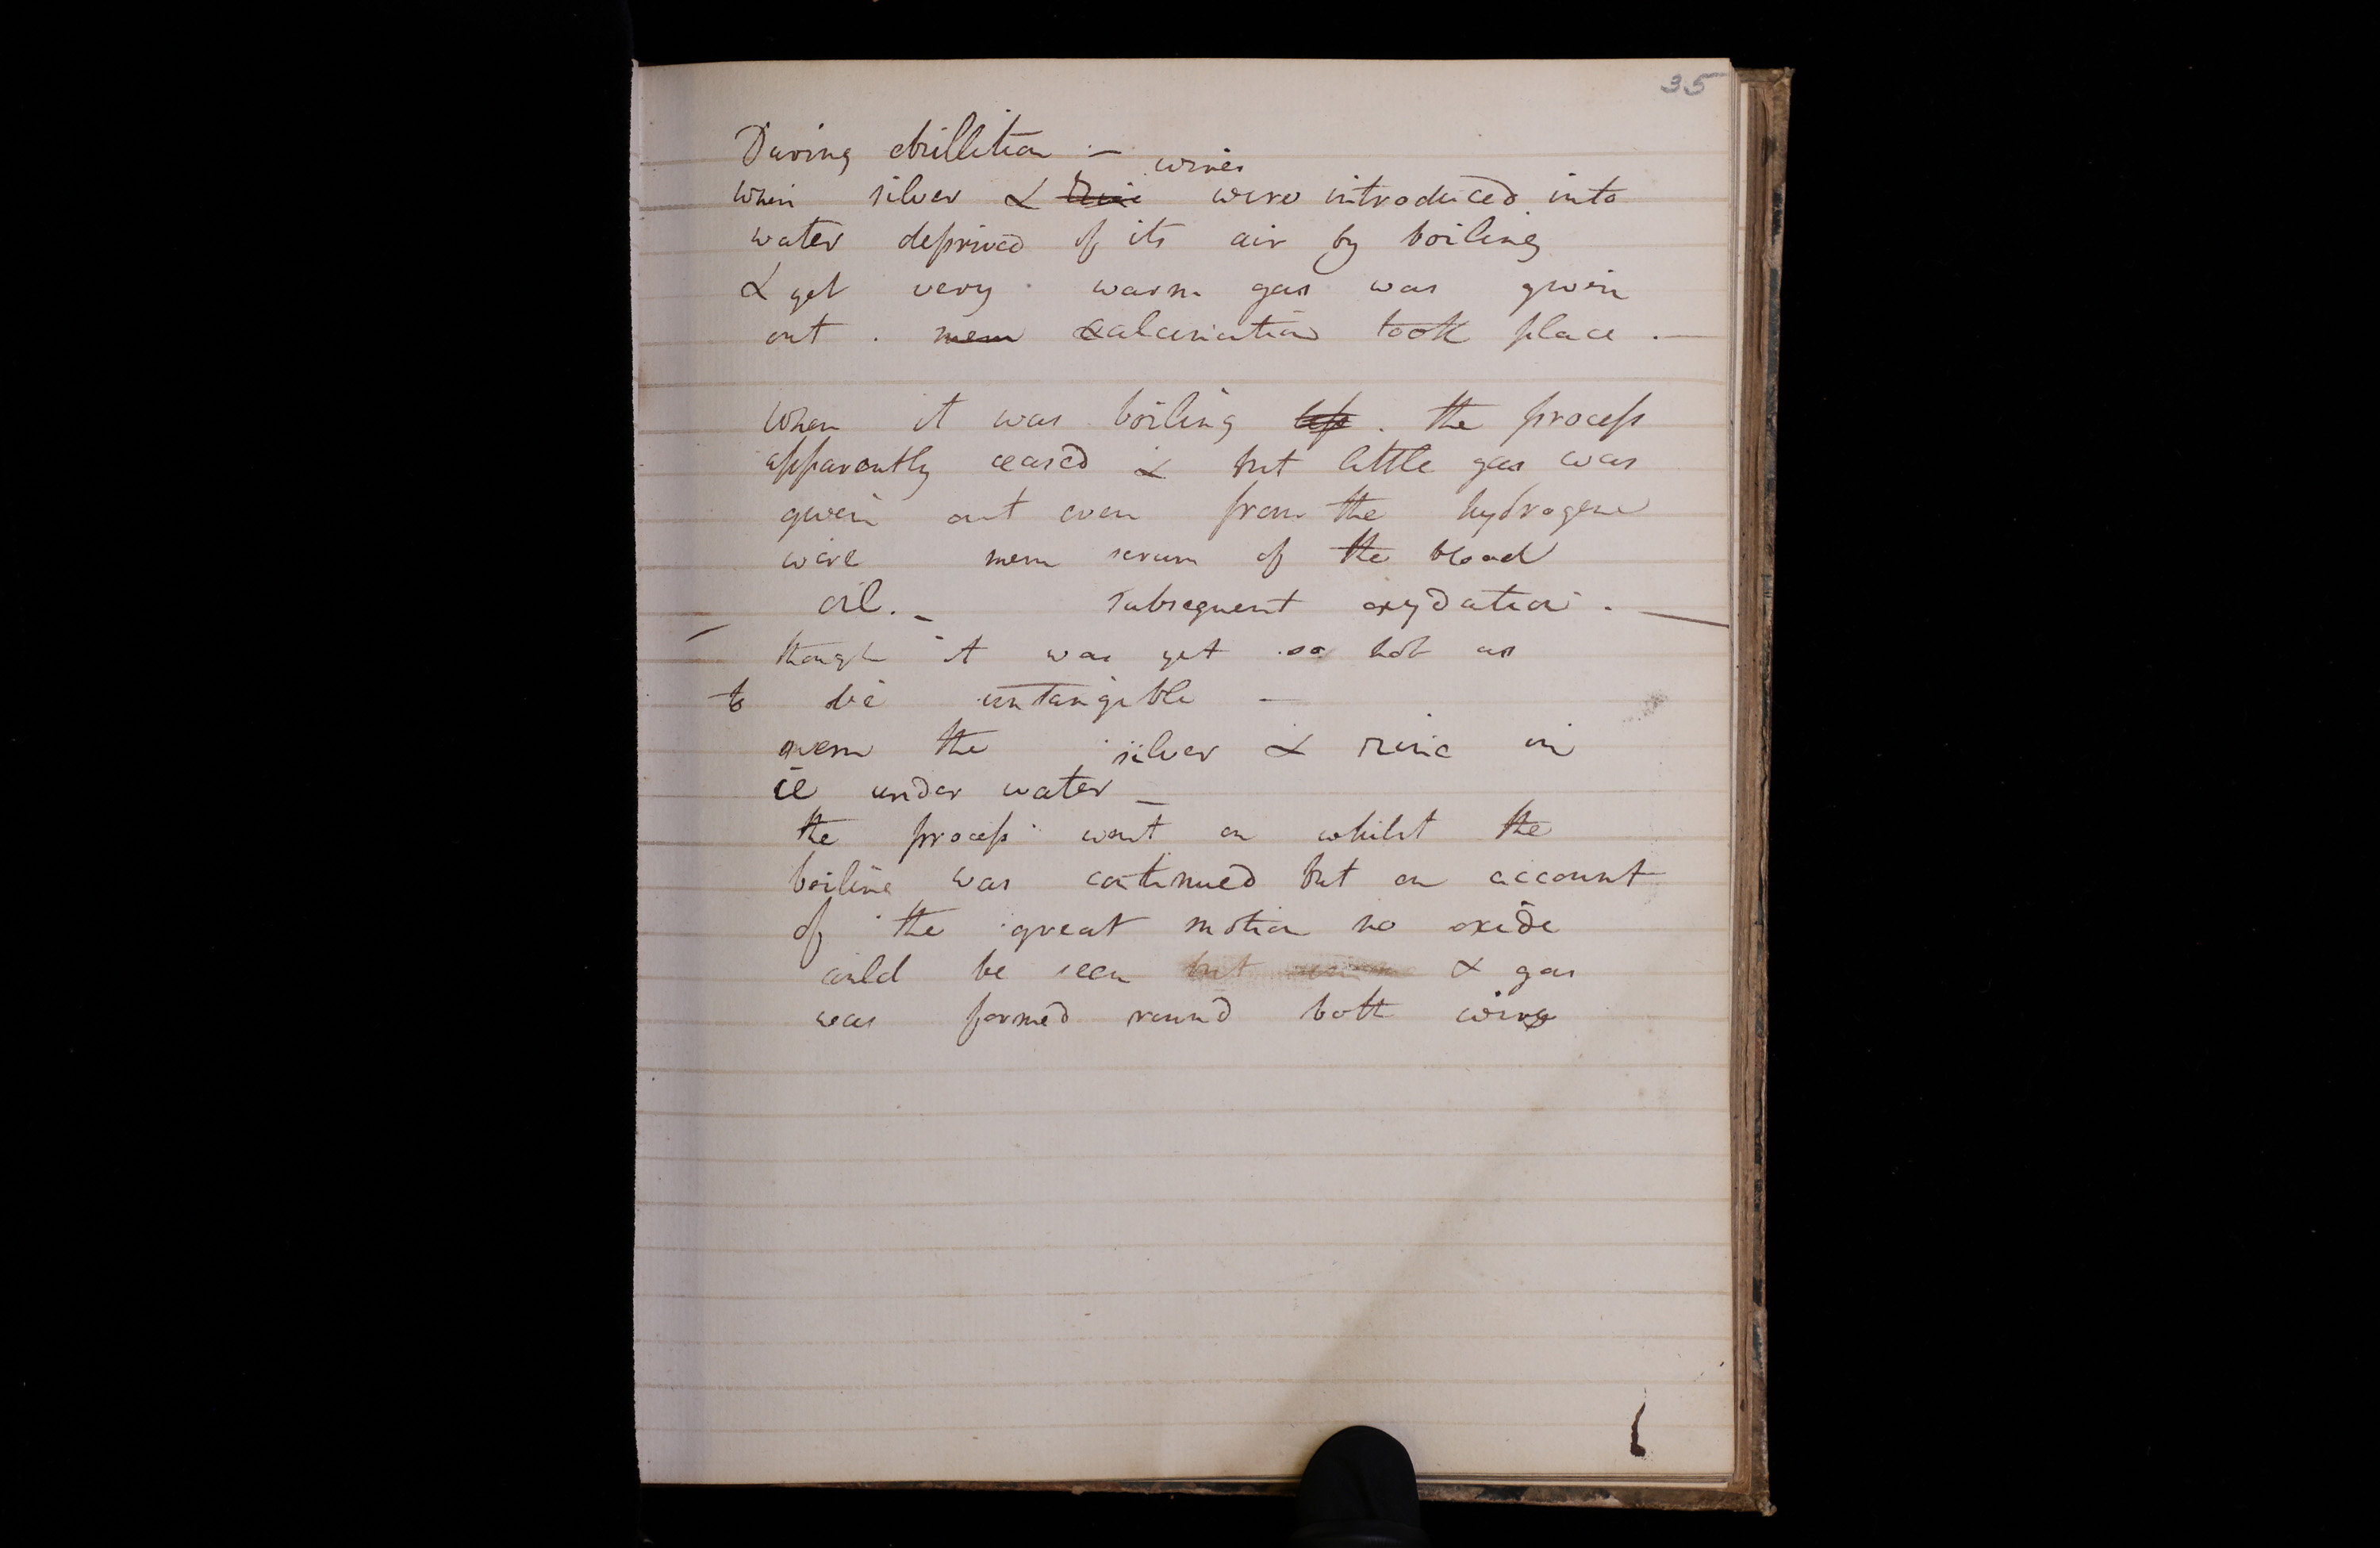 35
During ebullition :—
wires
When silver & zinc were introduced into
water deprived of its air by boiling
& yet very warm gas was given
out . mem calcination took place .—
When it was boiling . the process
apparently ceased & but little gas was
given out even from the hydrogene
wire mem serum of the blood
oil. — subsequent oxydation . —
though it was yet so hot as
to be untangible —
mem the silver & zinc in
ice under water —
the process went on whilst the
boiling was continued but on account
of the great motion no oxide
could be seen but & gas
was formed round both wires